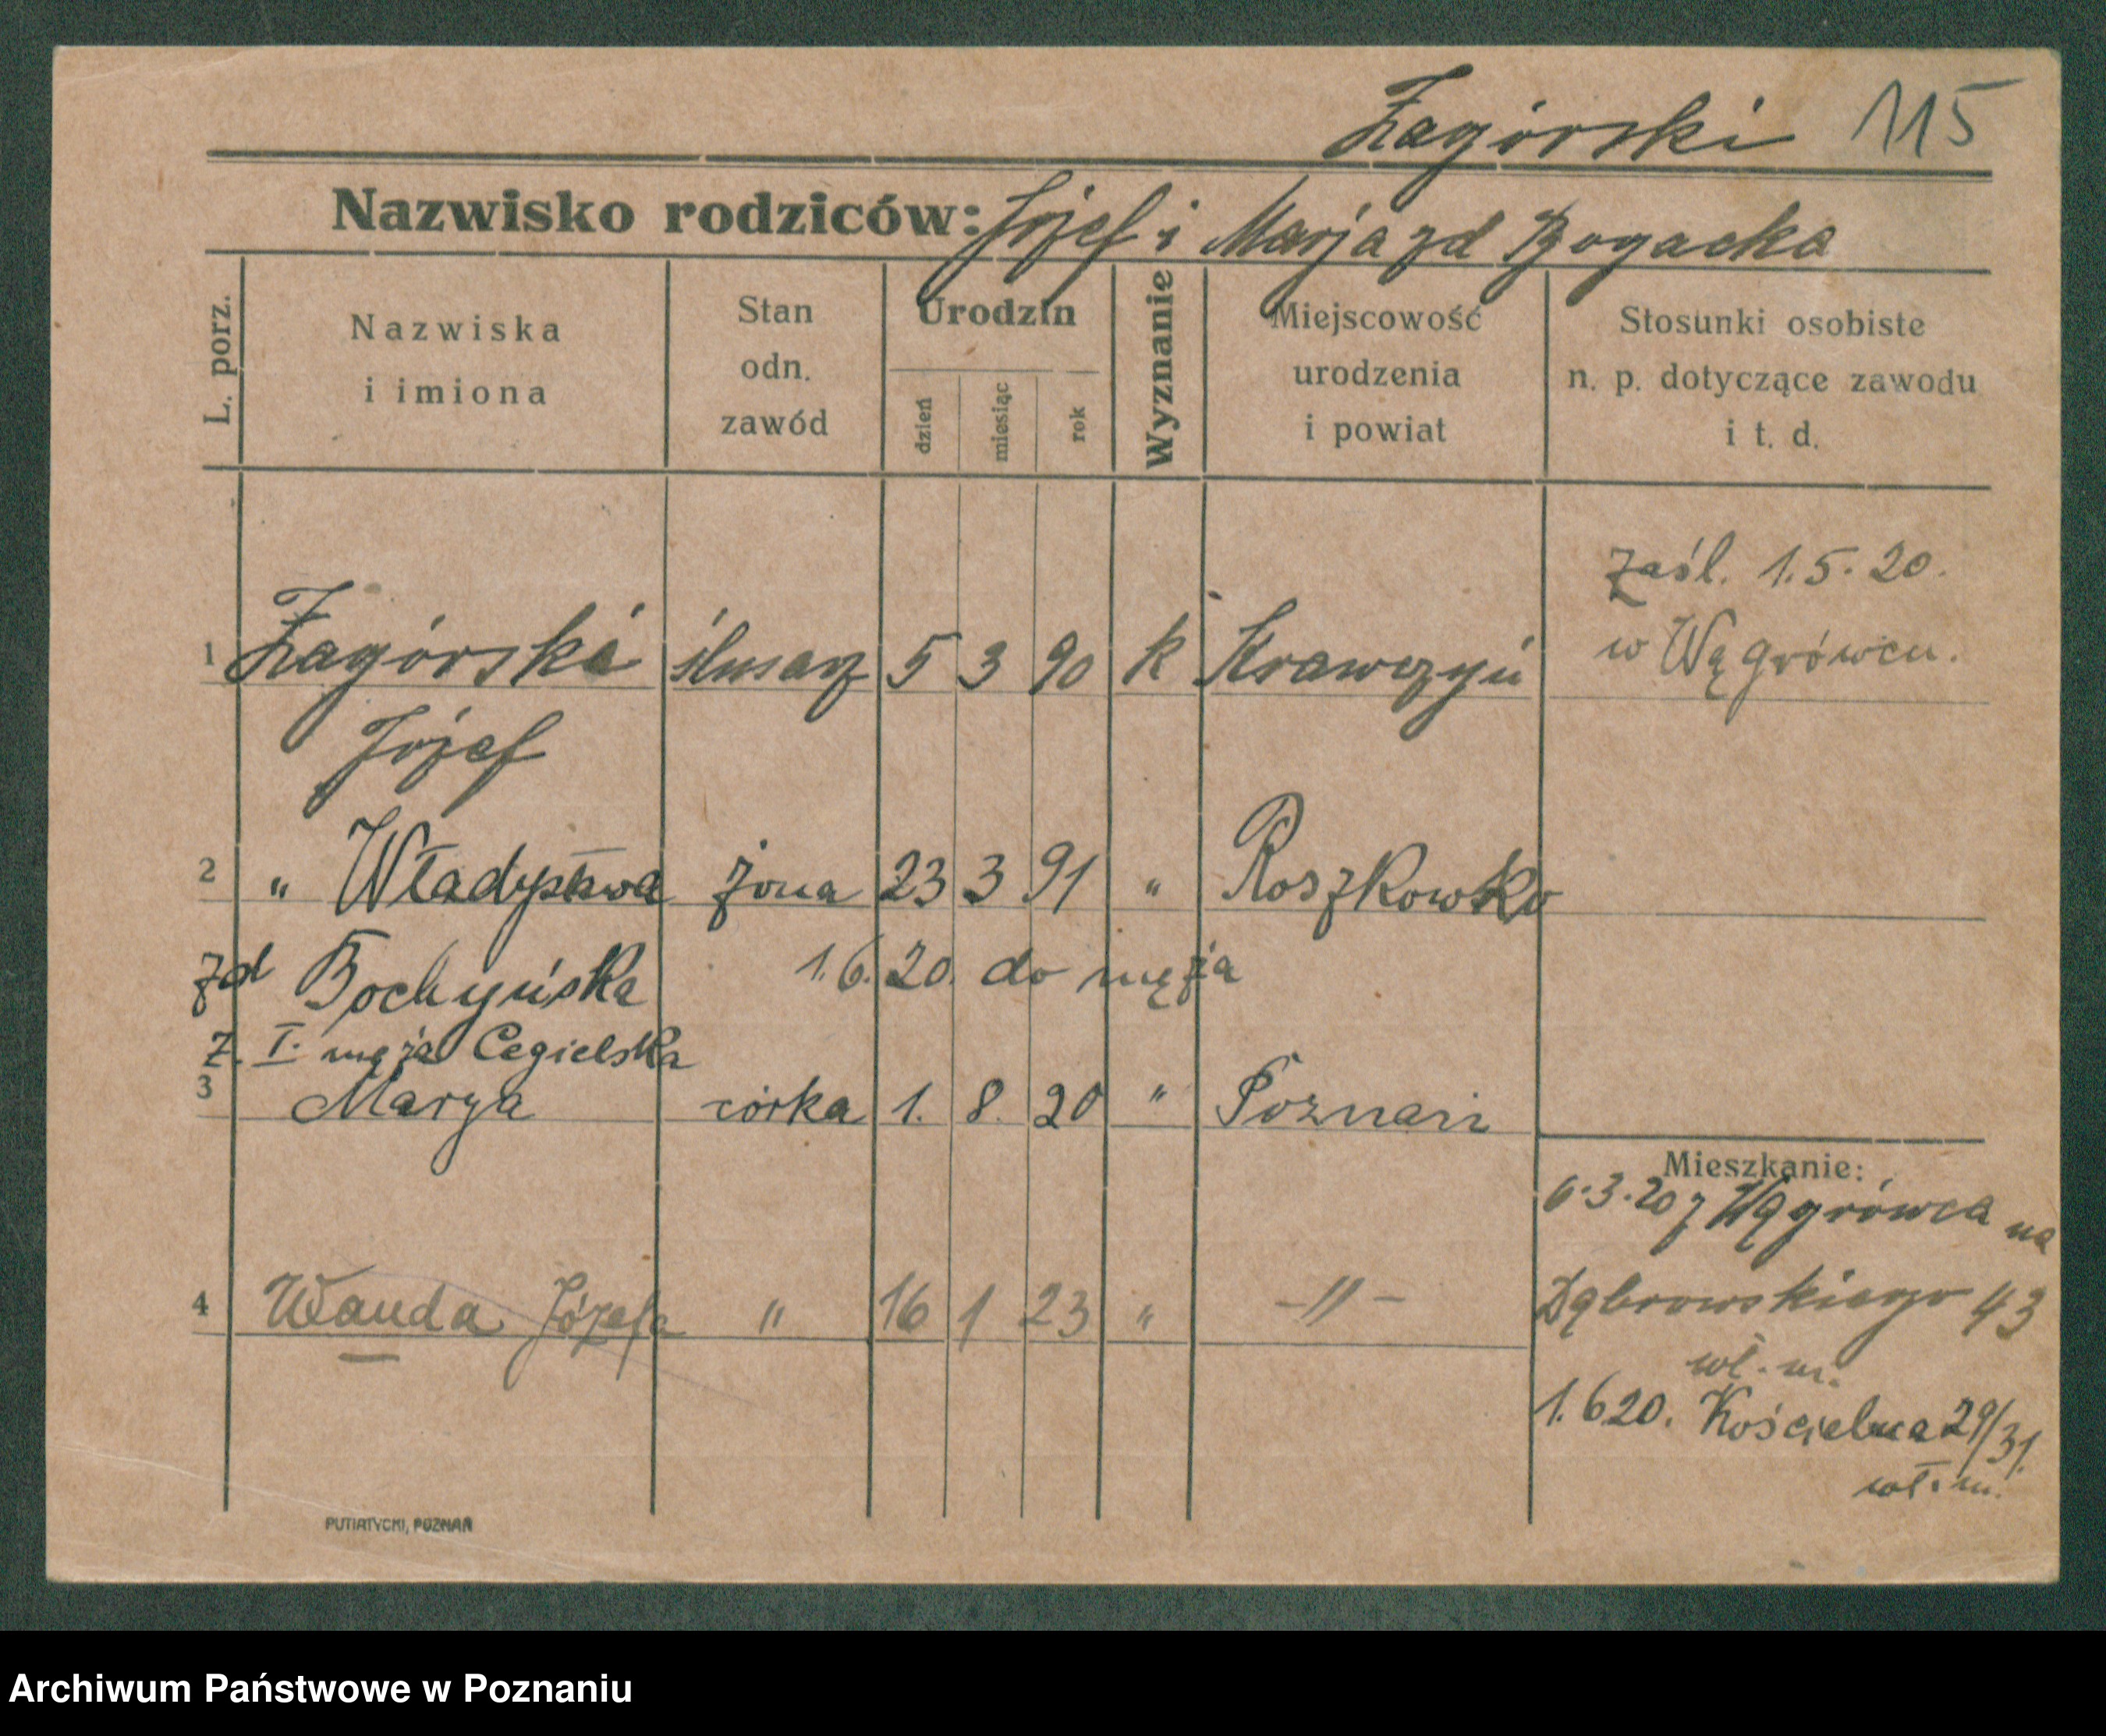 Zagórski 115
Nazwisko rodziców: Józef i Marja zd Bogacka
L. porz.
Nazwiska
i imiona
Stan
odn.
zawód
Urodzin
dzień
miesiąc
rok
Wyznanie
Miejscowość
urodzenia
i powiat
Stosunki osobiste
n. p. dotyczące zawodu
i t. d.
zaśl. 1.5.20.
w Wągrówcu.
1 Zagórski ślusarz 5 3 90 k Krawczyń
Józef
2 " Władysława żona 23 3 91 " Roszkowko
zd Bochyńska 1.6.20. do męża
z. I. męża Cegielska
3 Marya córka 1. 8. 20 " Poznań
Mieszkanie:
6.3.20 z Wągrówca na
4 Wanda Józefa " 16 1 23 " -"-
Dąbrowskiego 43
wł. m.
1.620. Kościelna 29/31.
wł. m.
PUTIATYCKI, POZNAŃ
Archiwum Państwowe w Poznaniu